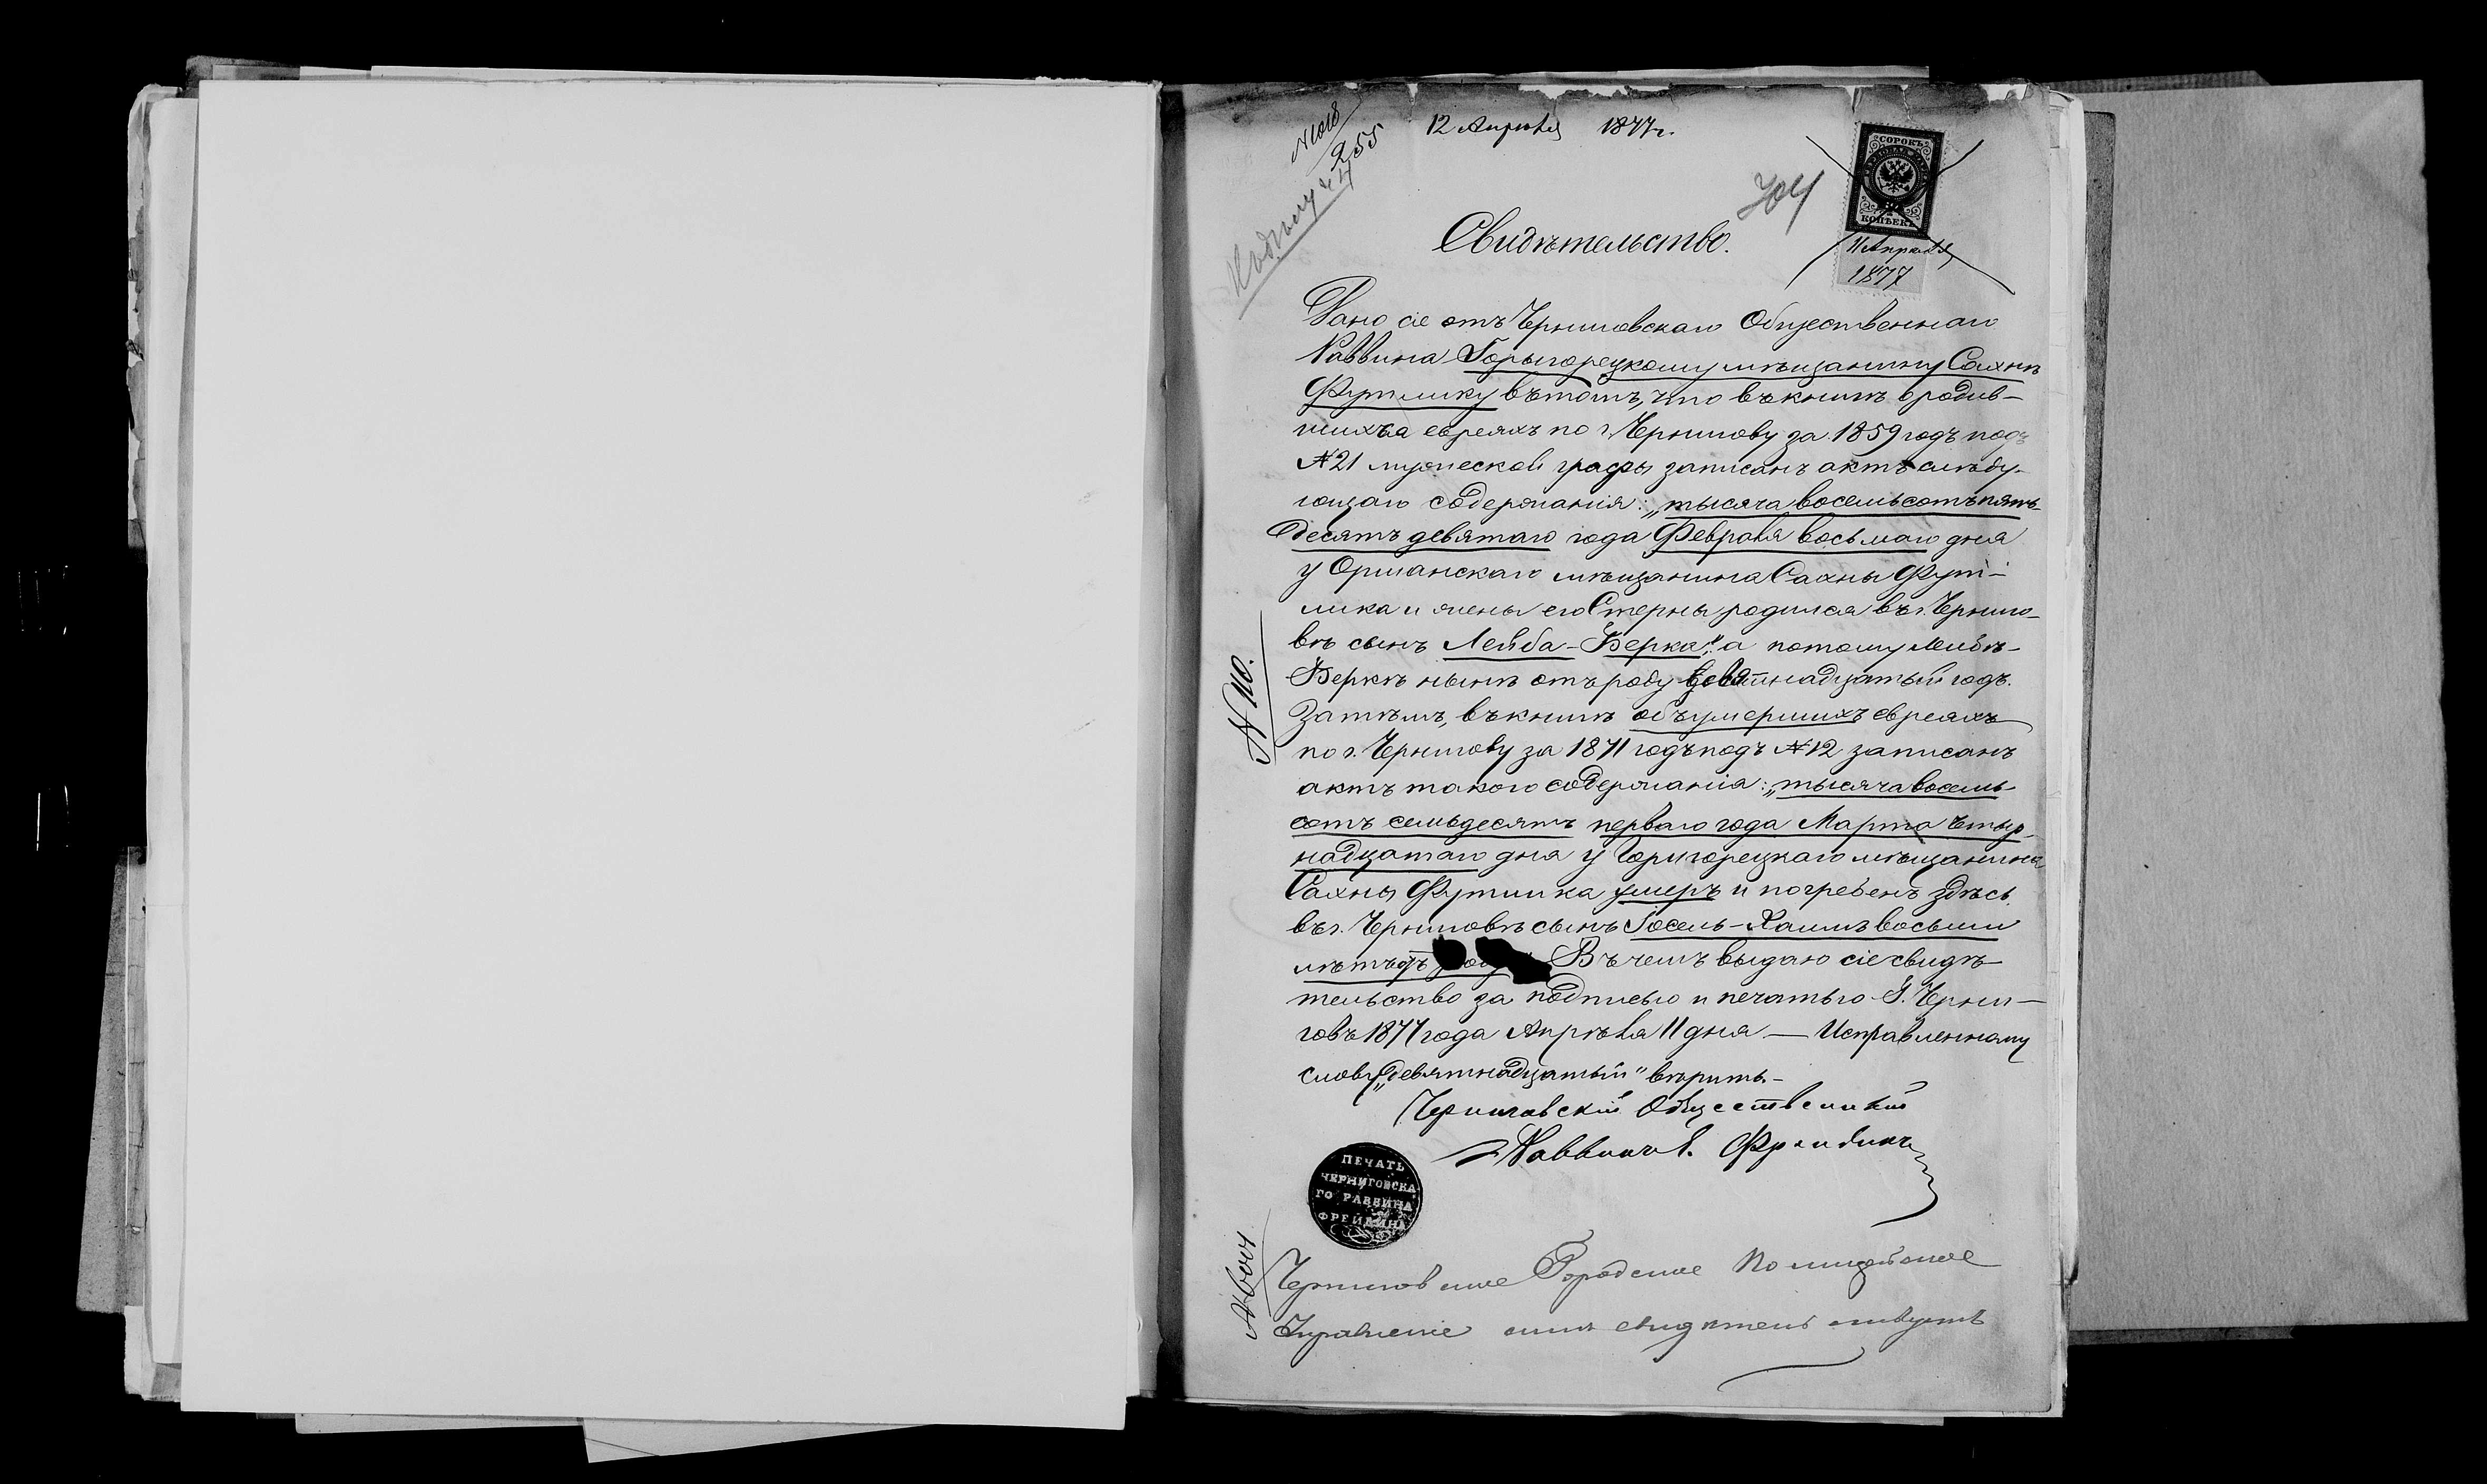 № 1018
255
12 Апрѣля 1877 г.
704
СОРОКЪ
КОПѢЕКЪ
11 Апрѣля
1877
Свидѣтельство.
Дано сіе отъ Черниговскаго Общественнаго
Раввина Горыгорецкому мѣщанину Сахнѣ
Футлику въ томъ, что въ книгѣ о родив-
шихся евреяхъ по г. Чернигову за 1859 годъ подъ
№ 21 мужеской графы записанъ актъ слѣду-
ющаго содержанія: „тысяча восемьсотъ пять-
десятъ девятаго года Февраля восьмаго дня
у Оршанскаго мѣщанина Сахны Фут-
лика и жены его Стерны родился въ г. Черниго-
вѣ сынъ Лейба-Берка", а потому Лейбѣ-
Беркѣ нынѣ отъ роду девятнадцатый годъ.
Затѣмъ, въ книгѣ объ умершихъ евреяхъ
по г. Чернигову за 1871 годъ подъ № 12 записанъ
актъ такого содержанія: „тысяча восемь-
сотъ семьдесятъ перваго года Марта четыр-
надцатаго дня у Горигорецкаго мѣщанина
Сахны Футлика умеръ и погребенъ здѣсь
въ г. Черниговѣ сынъ Іосель-Хаимъ восьми
лѣтъ отъ роду" Въ чемъ выдаю сіе свидѣ-
тельство за подписью и печатью. Г. Черни-
говъ 1877 года Апрѣля 11 дня — Исправленному
слову „девятнадцатый" вѣрить.-
Черниговскій Общественный
Раввинъ Фрейдинъ
№ 110.
ПЕЧАТЬ
ЧЕРНИГОВСКА
ГО РАВВИНА
ФРЕЙДИНА
Черниговское Городское Полицейское
Управленіе симъ свидѣтельствуетъ